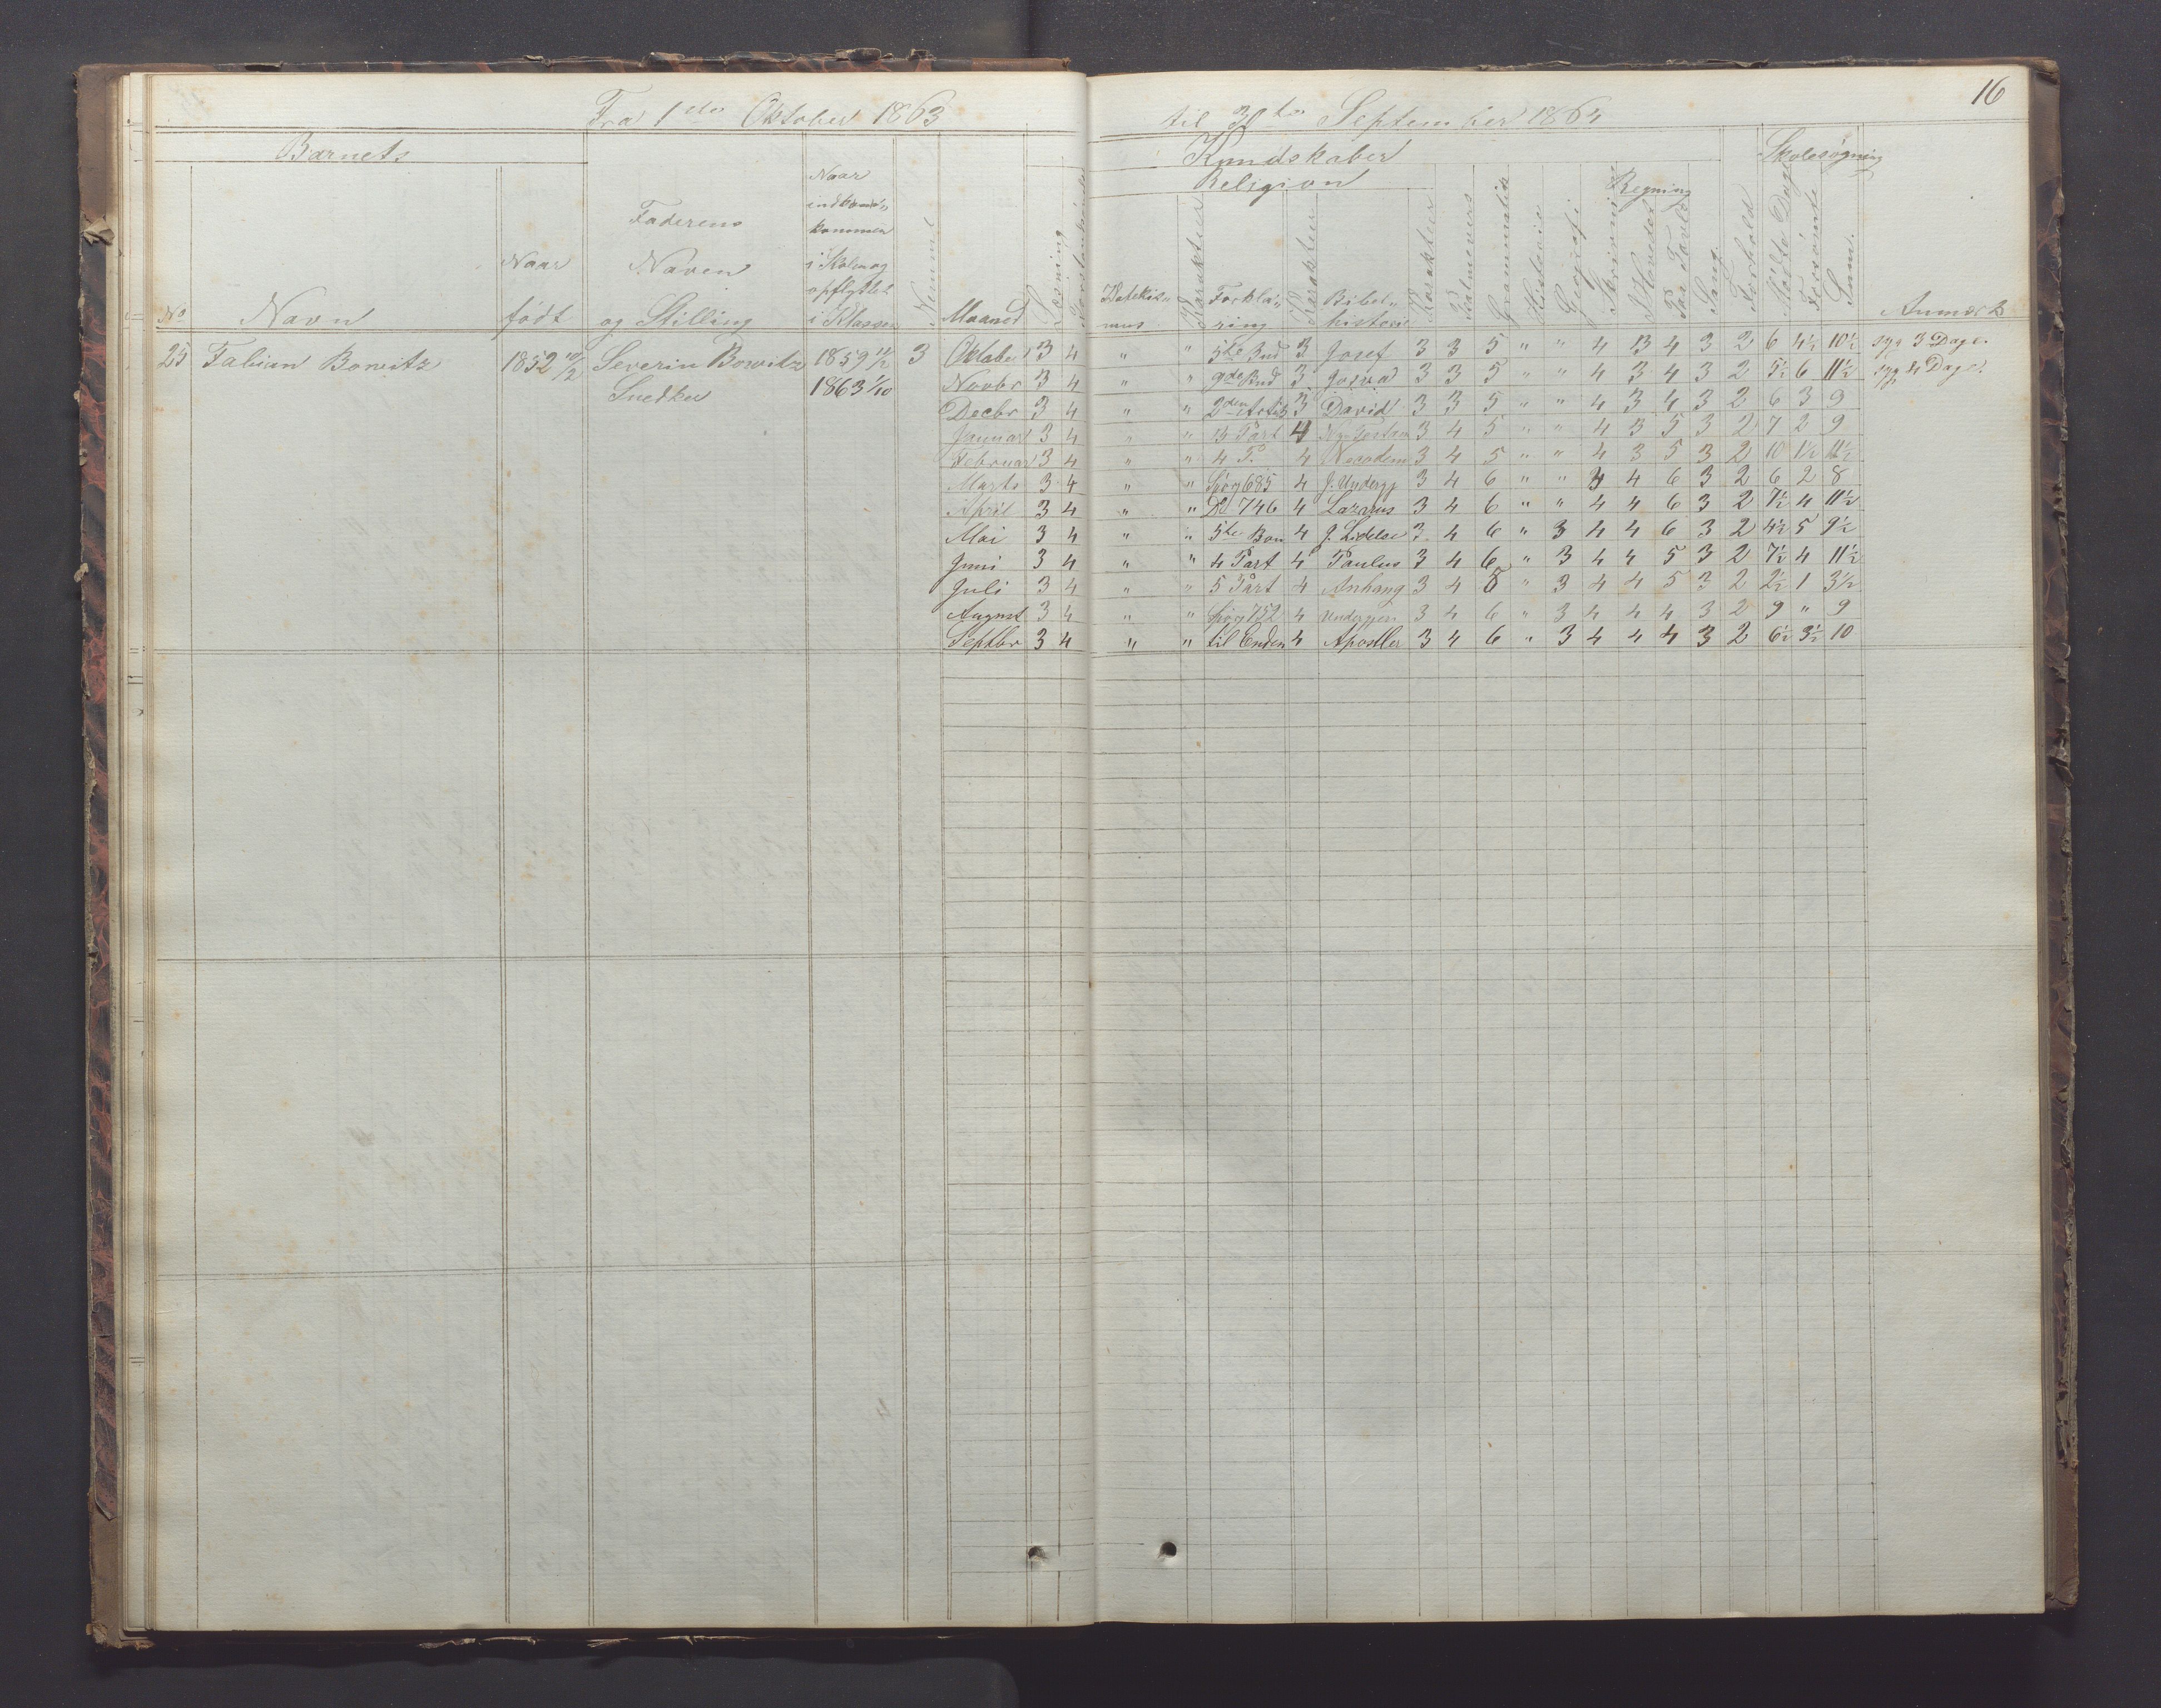 16
Fra 1ste Oktober 1863 til 30te September 1864
Barnets
Kundskaber
Skolesøgning
Religion
Regning
No
Navn
Naar født
Faderens Navn og Stilling
Naar indkommen i Skolen og opflyttet i Klassen
Nummer
Maaned
Læsning
Forstandsøvelse
Katekismus
Karakteer
Forklaring
Karakteer
Bibelhistorie
Karakteer
Psalmevers
Grammatik
Historie
Geografi
Skrivning
I Hovedet
Paa Tavle
Sang
Forhold
Mødte Dage
Forsømte
Sum.
Anmærk
25 Fabian Bowitz 1852 10/2 Severin Bowitz 1859 11/2 3 Oktober 3 4 " " 5te Bud 3 Josef 3 3 5 " " 4 3 4 3 2 6 4½ 10½ syg 3 Dage.
Snedker 1863 1/10 Novbr 3 4 " " 9de Bud 3 Josva 3 3 5 " " 4 3 4 3 2 5½ 6 11½ syg 4 Dage.
Decbr 3 4 " " 2den Art 3 David 3 3 5 " " 4 3 4 3 2 6 3 9
Januar 3 4 " " 3 Part 4 Ny Testam 3 4 5 " " 4 3 5 3 2 7 2 9
Februar 3 4 " " 4 P. 4 Nicodem 3 4 5 " " 4 3 5 3 2 10 1½ 11½
Marts 3 4 " " Spøg 685 4 J. Undergj 3 4 6 " " 4 4 6 3 2 6 2 8
April 3 4 " " Do 746 4 Lazarus 3 4 6 " " 4 4 6 3 2 7½ 4 11½
Mai 3 4 " " 5te Bøn 4 J. Lidelse 3 4 6 " 3 4 4 6 3 2 4½ 5 9½
Juni 3 4 " " 4 Part 4 Paulus 3 4 6 " 3 4 4 5 3 2 7½ 4 11½
Juli 3 4 " " 5 Part 4 Anhang 3 4 8 " 3 4 4 5 3 2 2½ 1 3½
August 3 4 " " Spøg 752 4 Undergjer 3 4 6 " 3 4 4 4 3 2 9 " 9
Septbr 3 4 " " til Enden 4 Apostler 3 4 6 " 3 4 4 4 3 2 6½ 3½ 10